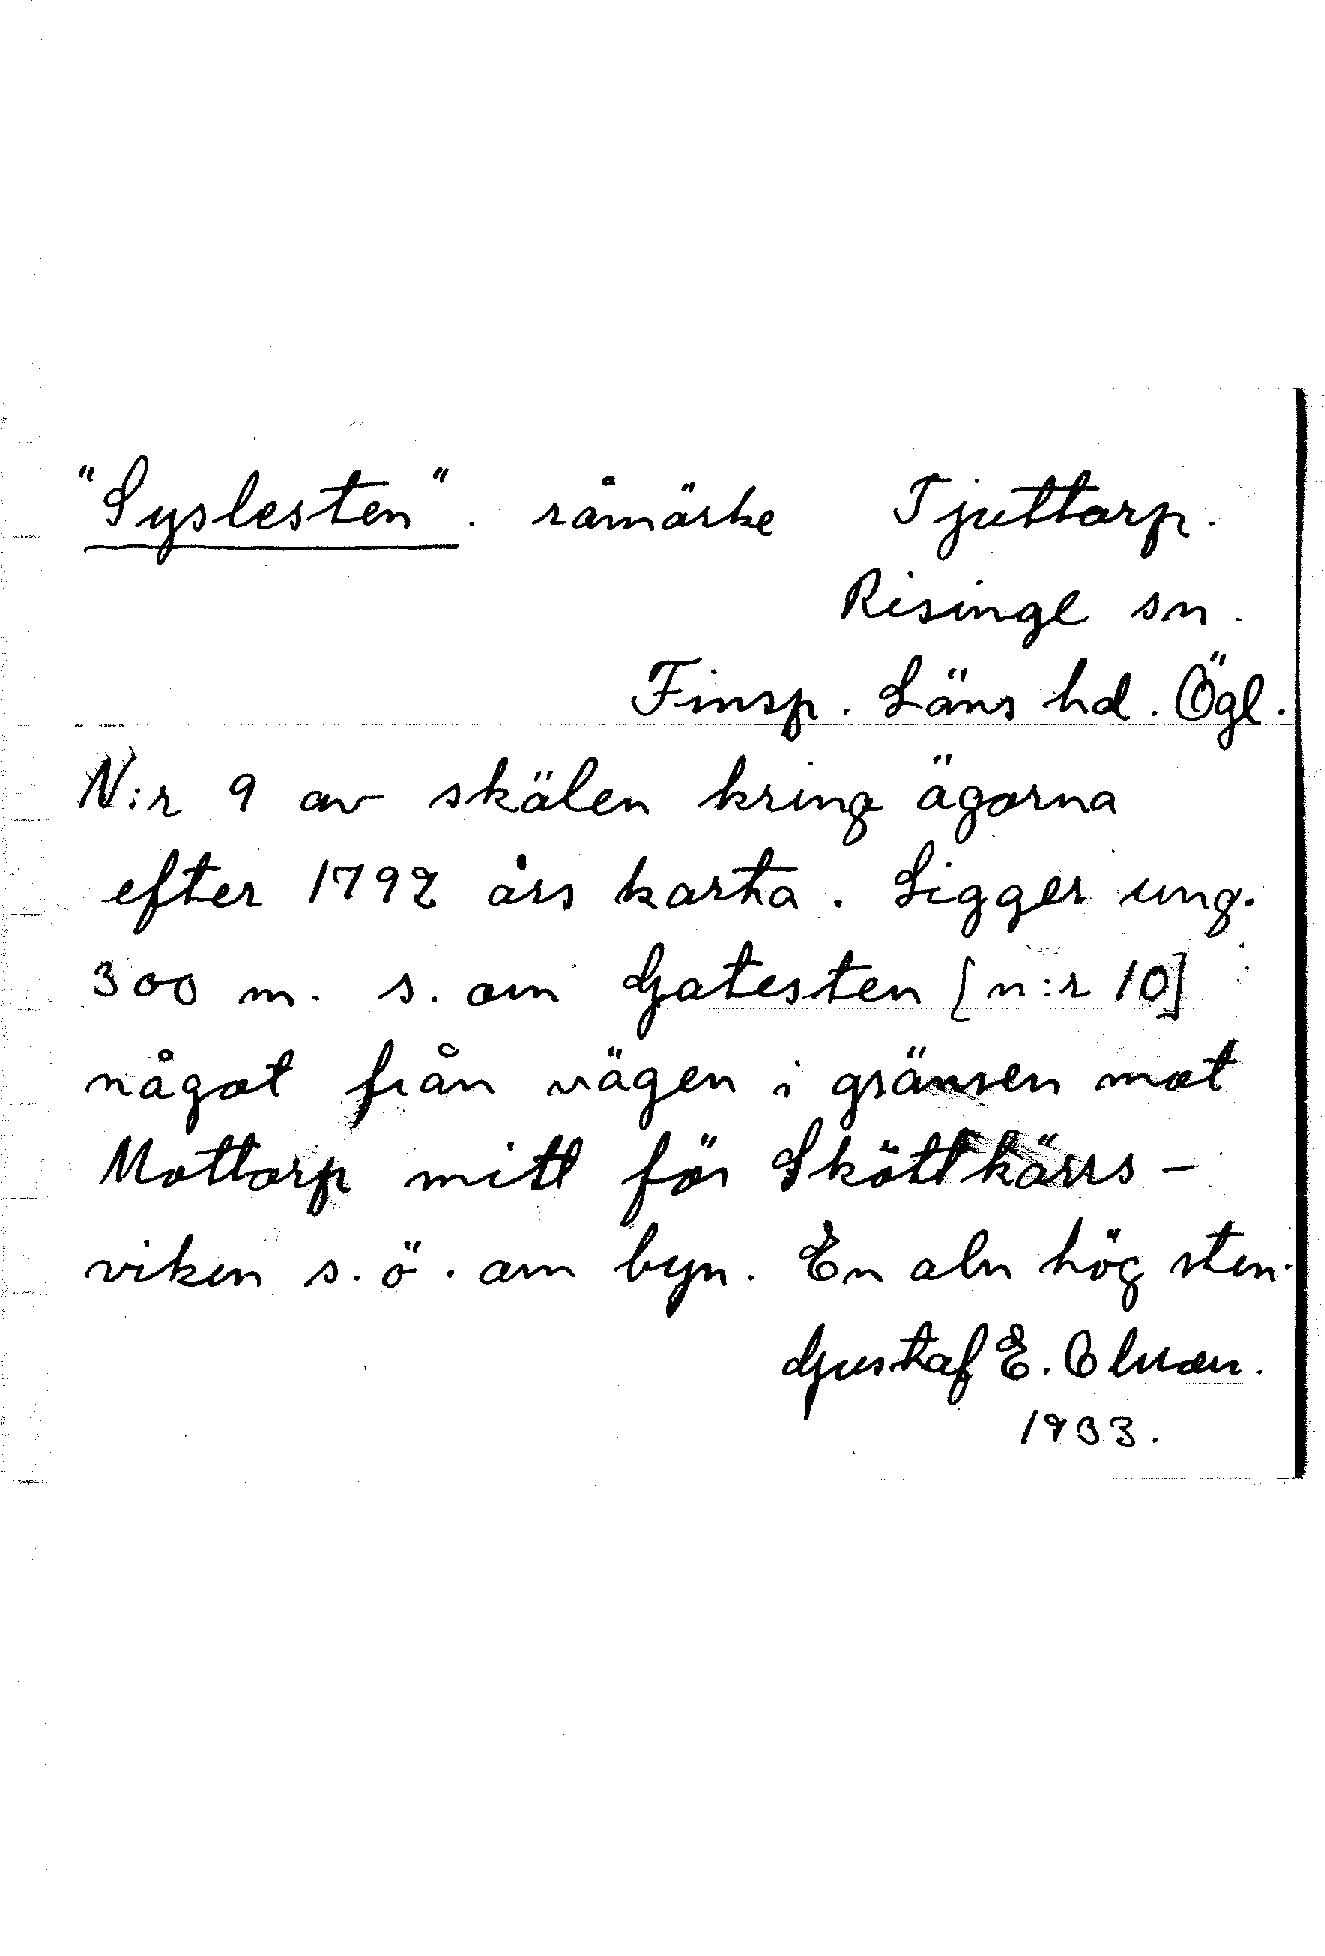 "Syslesten". råmärke Tjuttorp.
Risinge sn.
Finsp. Läns hd. Ögl.
N:r 9 av skälen kring ägorna
efter 1792 års karta. Ligger ung.
300 m. s. om Gatesten [n:r 10]
något från vägen i gränsen mot
Mottorp mitt för Sköttkärrs-
viken s.ö. om byn. En aln hög sten.
Gustaf E. Olsson.
1933.